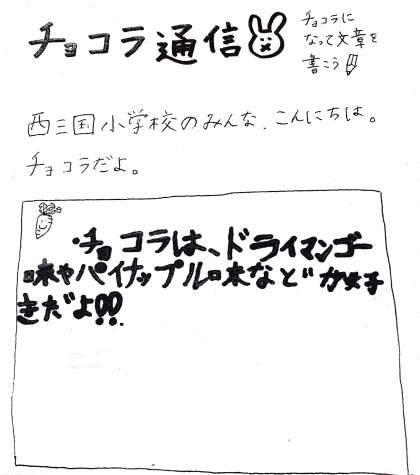 チョコラ通信
チョコラに
なって文章を
書こう
西三国小学校のみんな、こんにちは。
チョコラだよ。
・チョコラは、ドライマンゴー
味やパイナップル味などが好
きだよ!!